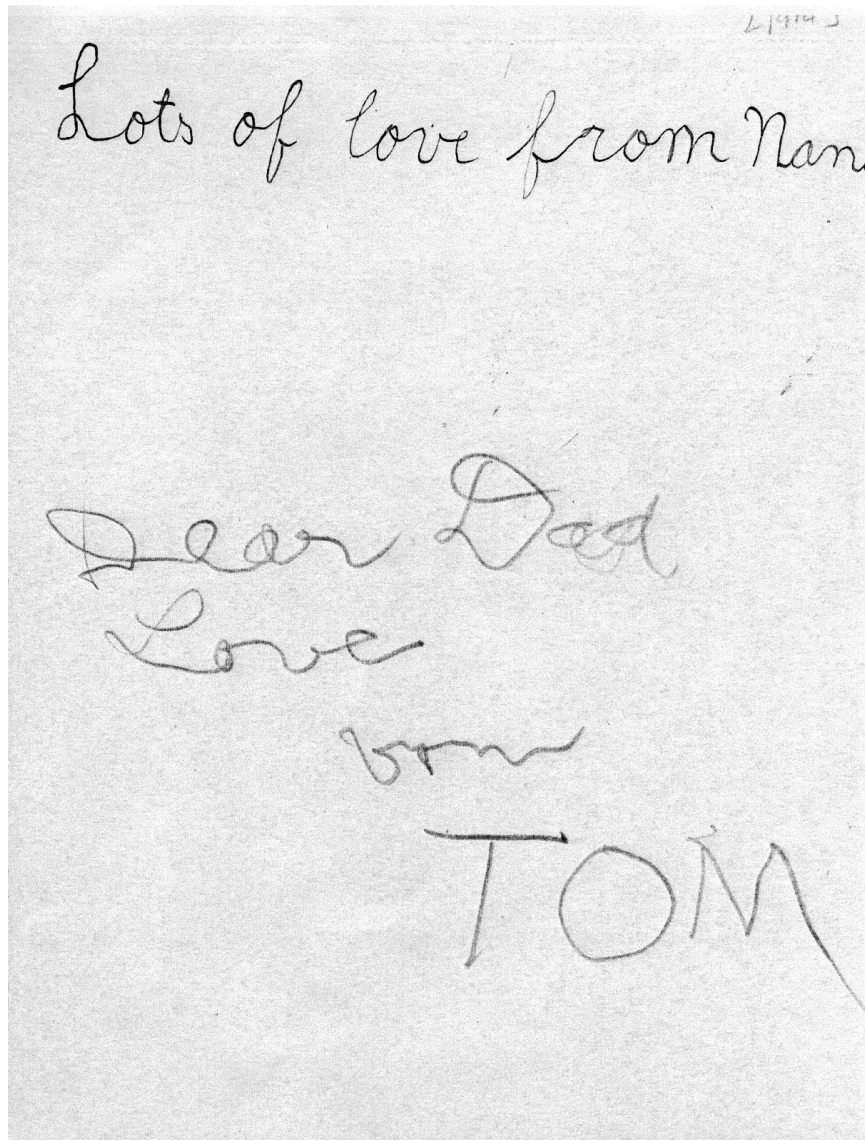 Lots of love from Nan
Dear Dad
Love
from
TOM